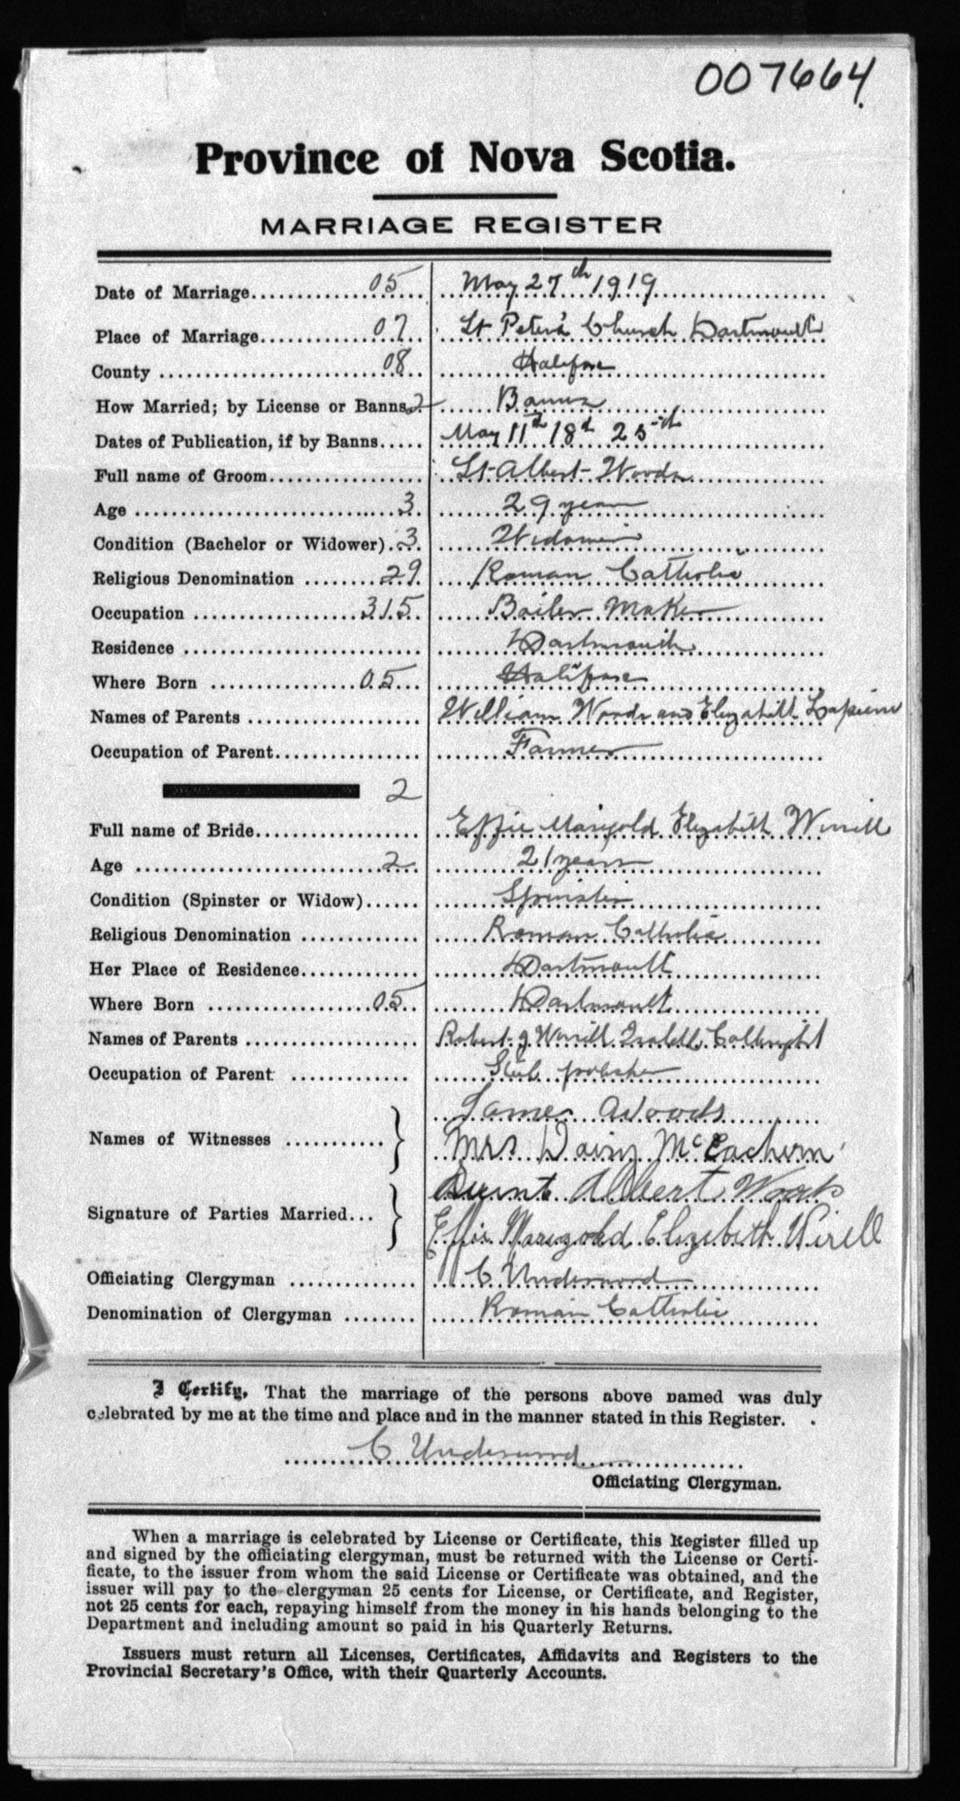 007664
Province of Nova Scotia.
MARRIAGE REGISTER
Date of Marriage 05 May 27th 1919
Place of Marriage 07 St Peter's Church Dartmouth
County 08 Halifax
How Married; by License or Banns 2 Banns
Dates of Publication, if by Banns May 11th 18th 25th
Full name of Groom St Albert Woods
Age 3 29 years
Condition (Bachelor or Widower) 3 Widower
Religious Denomination 29 Roman Catholic
Occupation 315 Boiler Maker
Residence Dartmouth
Where Born 05 Halifax
Names of Parents William Woods and Elizabeth
Occupation of Parent Farmer
2
Full name of Bride Effie Marigold Elizabeth Wirrill
Age 2 21 years
Condition (Spinster or Widow) Spinster
Religious Denomination Roman Catholic
Her Place of Residence Dartmouth
Where Born 05 Dartmouth
Names of Parents Robert J Wirrill
Occupation of Parent
Names of Witnesses James Woods
Mrs Daisy McEachern
Signature of Parties Married Albert Woods
Effie Marigold Elizebeth Wirell
Officiating Clergyman C Underwood
Denomination of Clergyman Roman Catholic
I Certify, That the marriage of the persons above named was duly
celebrated by me at the time and place and in the manner stated in this Register.
C Underwood
Officiating Clergyman.
When a marriage is celebrated by License or Certificate, this Register filled up
and signed by the officiating clergyman, must be returned with the License or Certi-
ficate, to the issuer from whom the said License or Certificate was obtained, and the
issuer will pay to the clergyman 25 cents for License, or Certificate, and Register,
not 25 cents for each, repaying himself from the money in his hands belonging to the
Department and including amount so paid in his Quarterly Returns.
Issuers must return all Licenses, Certificates, Affidavits and Registers to the
Provincial Secretary's Office, with their Quarterly Accounts.